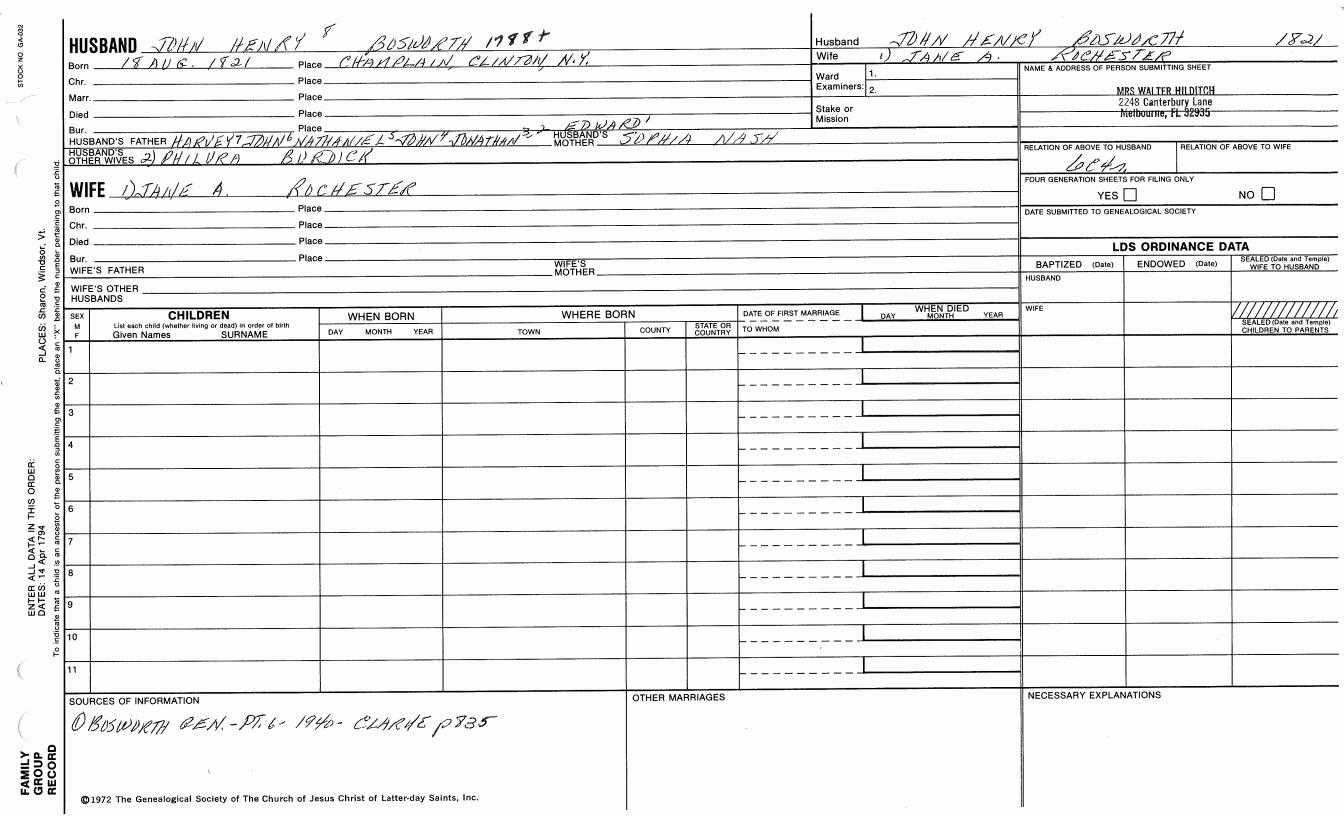 STOCK NO GA-032
HUSBAND JOHN HENRY 8 BOSWORTH 1788+
Born 18 AUG. 1821 Place CHAMPLAIN, CLINTON, N.Y.
Chr. Place
Marr. Place
Died Place
Bur. Place
HUSBAND'S FATHER HARVEY 7 JOHN 6 NATHANIEL 5 JOHN 4 JONATHAN 3 2 EDWARD 1 HUSBAND'S MOTHER SOPHIA NASH
HUSBAND'S OTHER WIVES 2) PHILURA BURDICK
WIFE 1) JANE A. ROCHESTER
Born Place
Chr. Place
Died Place
Bur. Place
WIFE'S FATHER WIFE'S MOTHER
WIFE'S OTHER HUSBANDS
Husband JOHN HENRY BOSWORTH 1821
Wife 1) JANE A. ROCHESTER
Ward Examiners: 1. 2.
Stake or Mission
NAME & ADDRESS OF PERSON SUBMITTING SHEET
MRS WALTER HILDITCH
2248 Canterbury Lane
Melbourne, FL 32935
RELATION OF ABOVE TO HUSBAND RELATION OF ABOVE TO WIFE
6c4r
FOUR GENERATION SHEETS FOR FILING ONLY
YES NO
DATE SUBMITTED TO GENEALOGICAL SOCIETY
LDS ORDINANCE DATA
BAPTIZED (Date) ENDOWED (Date) SEALED (Date and Temple) WIFE TO HUSBAND
HUSBAND
WIFE
SEALED (Date and Temple) CHILDREN TO PARENTS
SEX M F
CHILDREN
List each child (whether living or dead) in order of birth
Given Names SURNAME
WHEN BORN
DAY MONTH YEAR
WHERE BORN
TOWN COUNTY STATE OR COUNTRY
DATE OF FIRST MARRIAGE
TO WHOM
WHEN DIED
DAY MONTH YEAR
1
2
3
4
5
6
7
8
9
10
11
SOURCES OF INFORMATION
① BOSWORTH GEN.-PT. 6- 1940- CLARKE p835
OTHER MARRIAGES
NECESSARY EXPLANATIONS
©1972 The Genealogical Society of The Church of Jesus Christ of Latter-day Saints, Inc.
FAMILY GROUP RECORD
ENTER ALL DATA IN THIS ORDER:
DATES: 14 Apr 1794
PLACES: Sharon, Windsor, Vt.
To indicate that a child is an ancestor of the person submitting the sheet, place an "X" behind the number pertaining to that child.